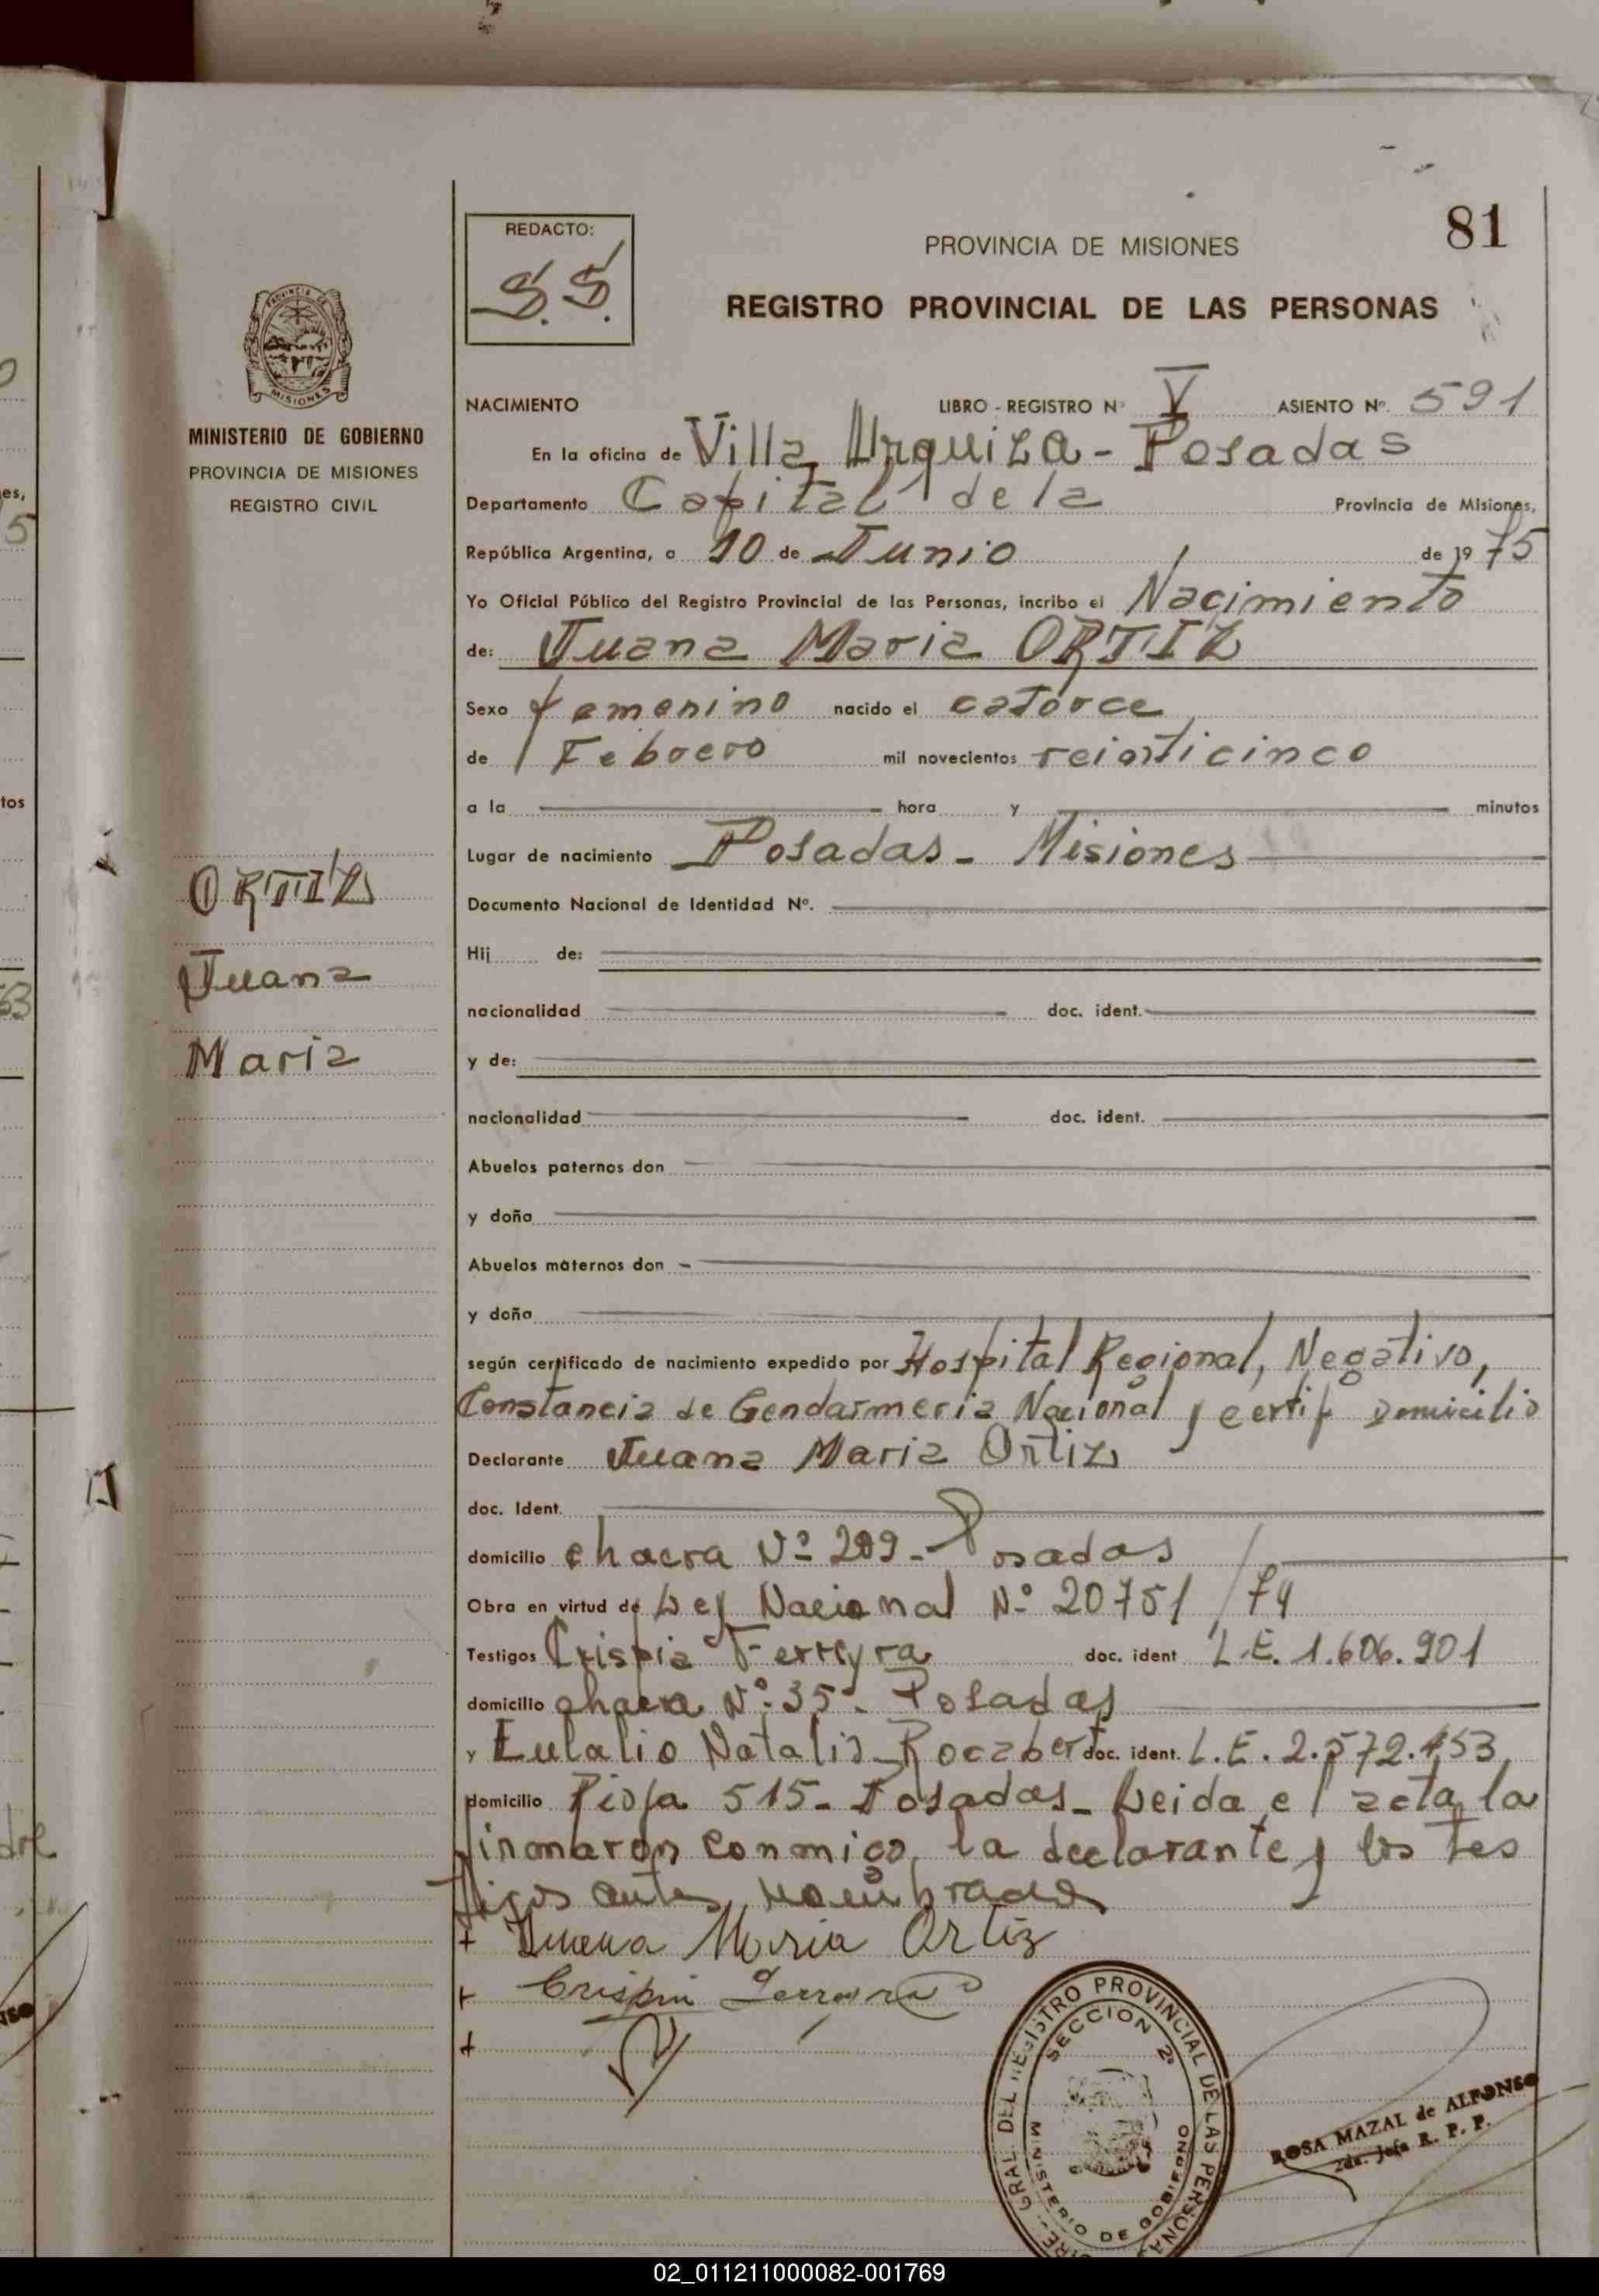 81
REDACTO:
S.S.
PROVINCIA DE MISIONES
REGISTRO PROVINCIAL DE LAS PERSONAS
MINISTERIO DE GOBIERNO
PROVINCIA DE MISIONES
REGISTRO CIVIL
ORTIZ
Juana
Maria
NACIMIENTO LIBRO - REGISTRO Nº V ASIENTO Nº. 591
En la oficina de Villa Urquiza - Posadas
Departamento Capital de la Provincia de Misiones,
República Argentina, a 10 de Junio de 1975
Yo Oficial Público del Registro Provincial de las Personas, incribo el Nacimiento
de: Juana Maria ORTIZ
Sexo femenino nacido el catorce
de Febrero mil novecientos veinticinco
a la hora y minutos
Lugar de nacimiento Posadas - Misiones
Documento Nacional de Identidad Nº.
Hij de:
nacionalidad doc. ident.
y de:
nacionalidad doc. ident.
Abuelos paternos don
y doña
Abuelos maternos don
y doña
según certificado de nacimiento expedido por Hospital Regional, Negativo,
Constancia de Gendarmeria Nacional y certif Domicilio
Declarante Juana Maria Ortiz
doc. Ident.
domicilio chacra Nº 209 - Posadas
Obra en virtud de Ley Nacional Nº 20751/74
Testigos Ferreyra doc. ident L.E. 1.606.901
domicilio chacra Nº 35 - Posadas
y Eulalio Natalio doc. ident. L.E. 2.572.453
domicilio Rioja 515 - Posadas - Leida el acta la
firmaron conmigo, la declarante y los tes
tigos antes nombrados
+ Juana Maria Ortiz
+ Crispin Ferreyra
+
GRAL. DEL REGISTRO PROVINCIAL DE LAS PERSONAS
SECCION 2ª
MINISTERIO DE GOBIERNO
ROSA MAZAL de ALFONSO
2da. Jefa R. P. P.
02_011211000082-001769